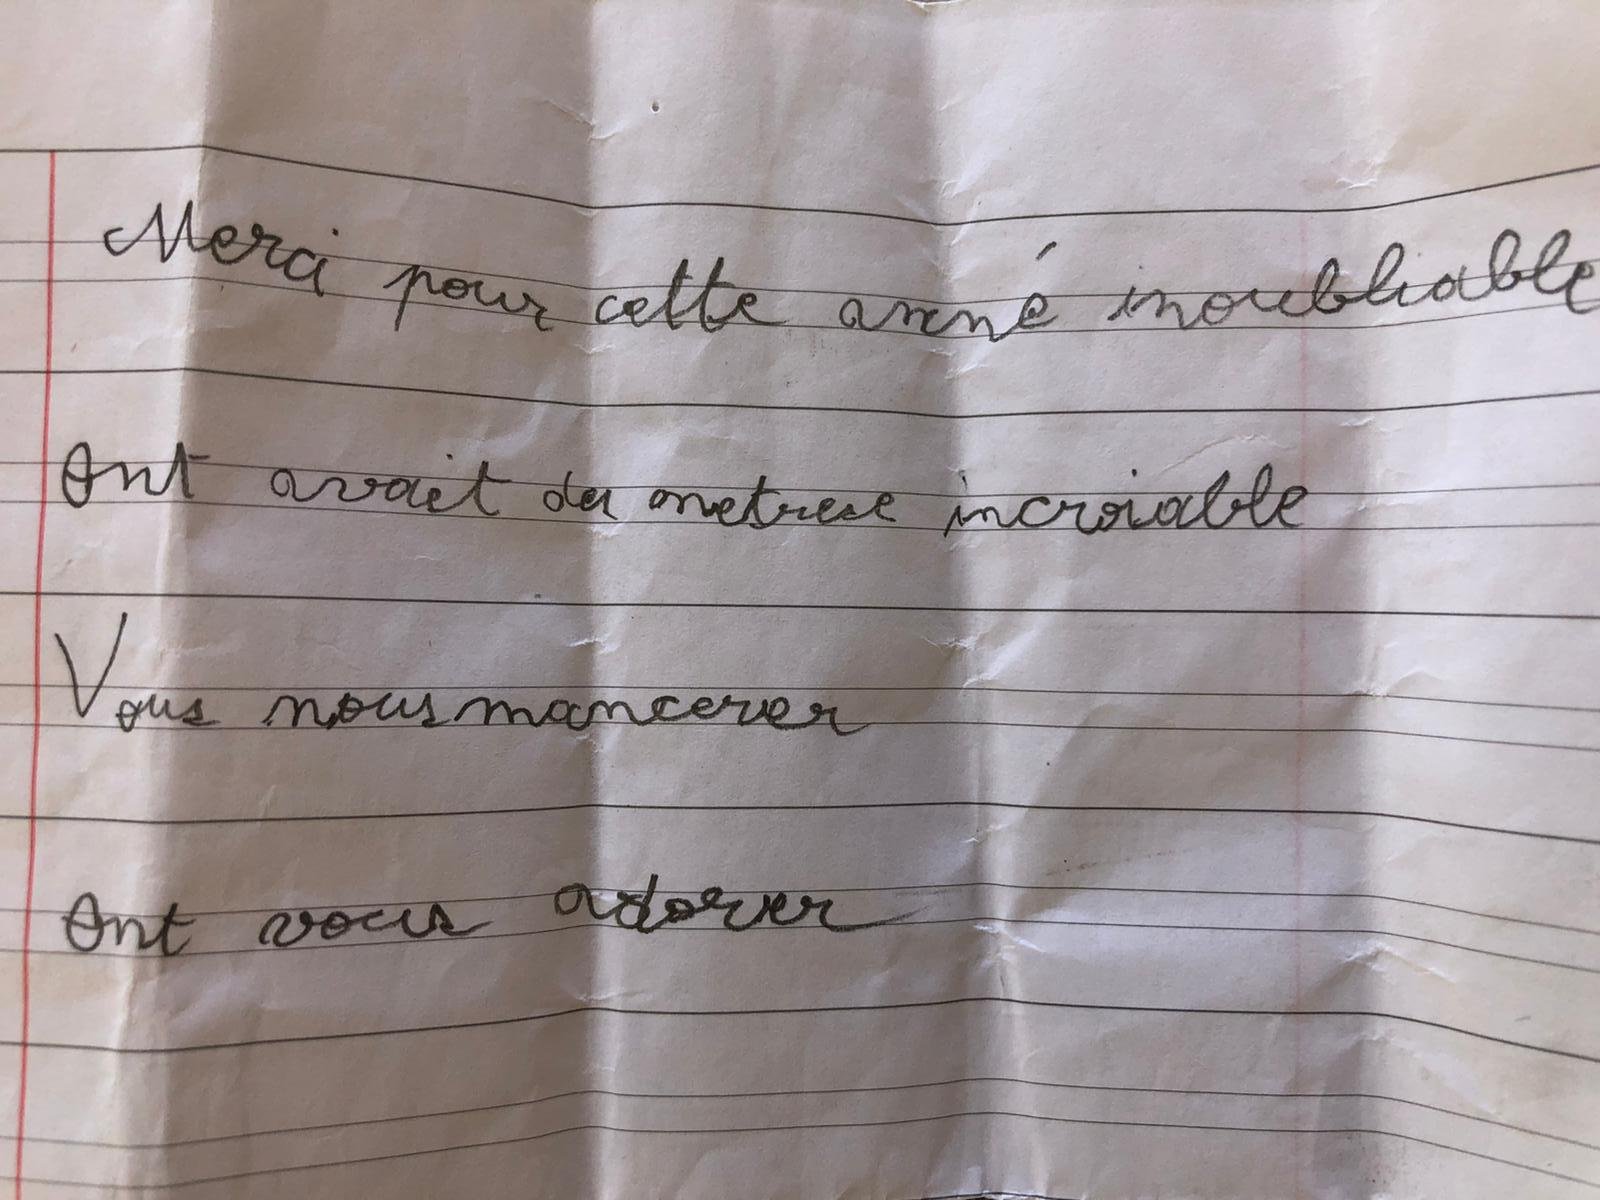 Merci pour cette anné inoubliable
Ont avait des metrese incroiable
Vous nous mancerer
Ont vous adorer